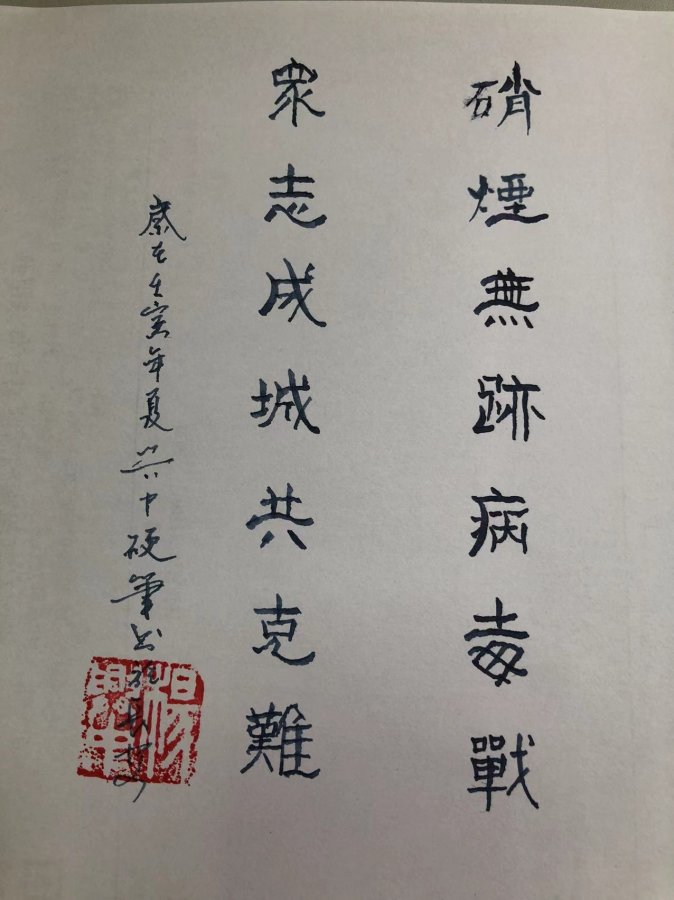 硝煙無跡病毒戰
眾志成城共克難
歲在壬寅年夏 昇中硬筆書